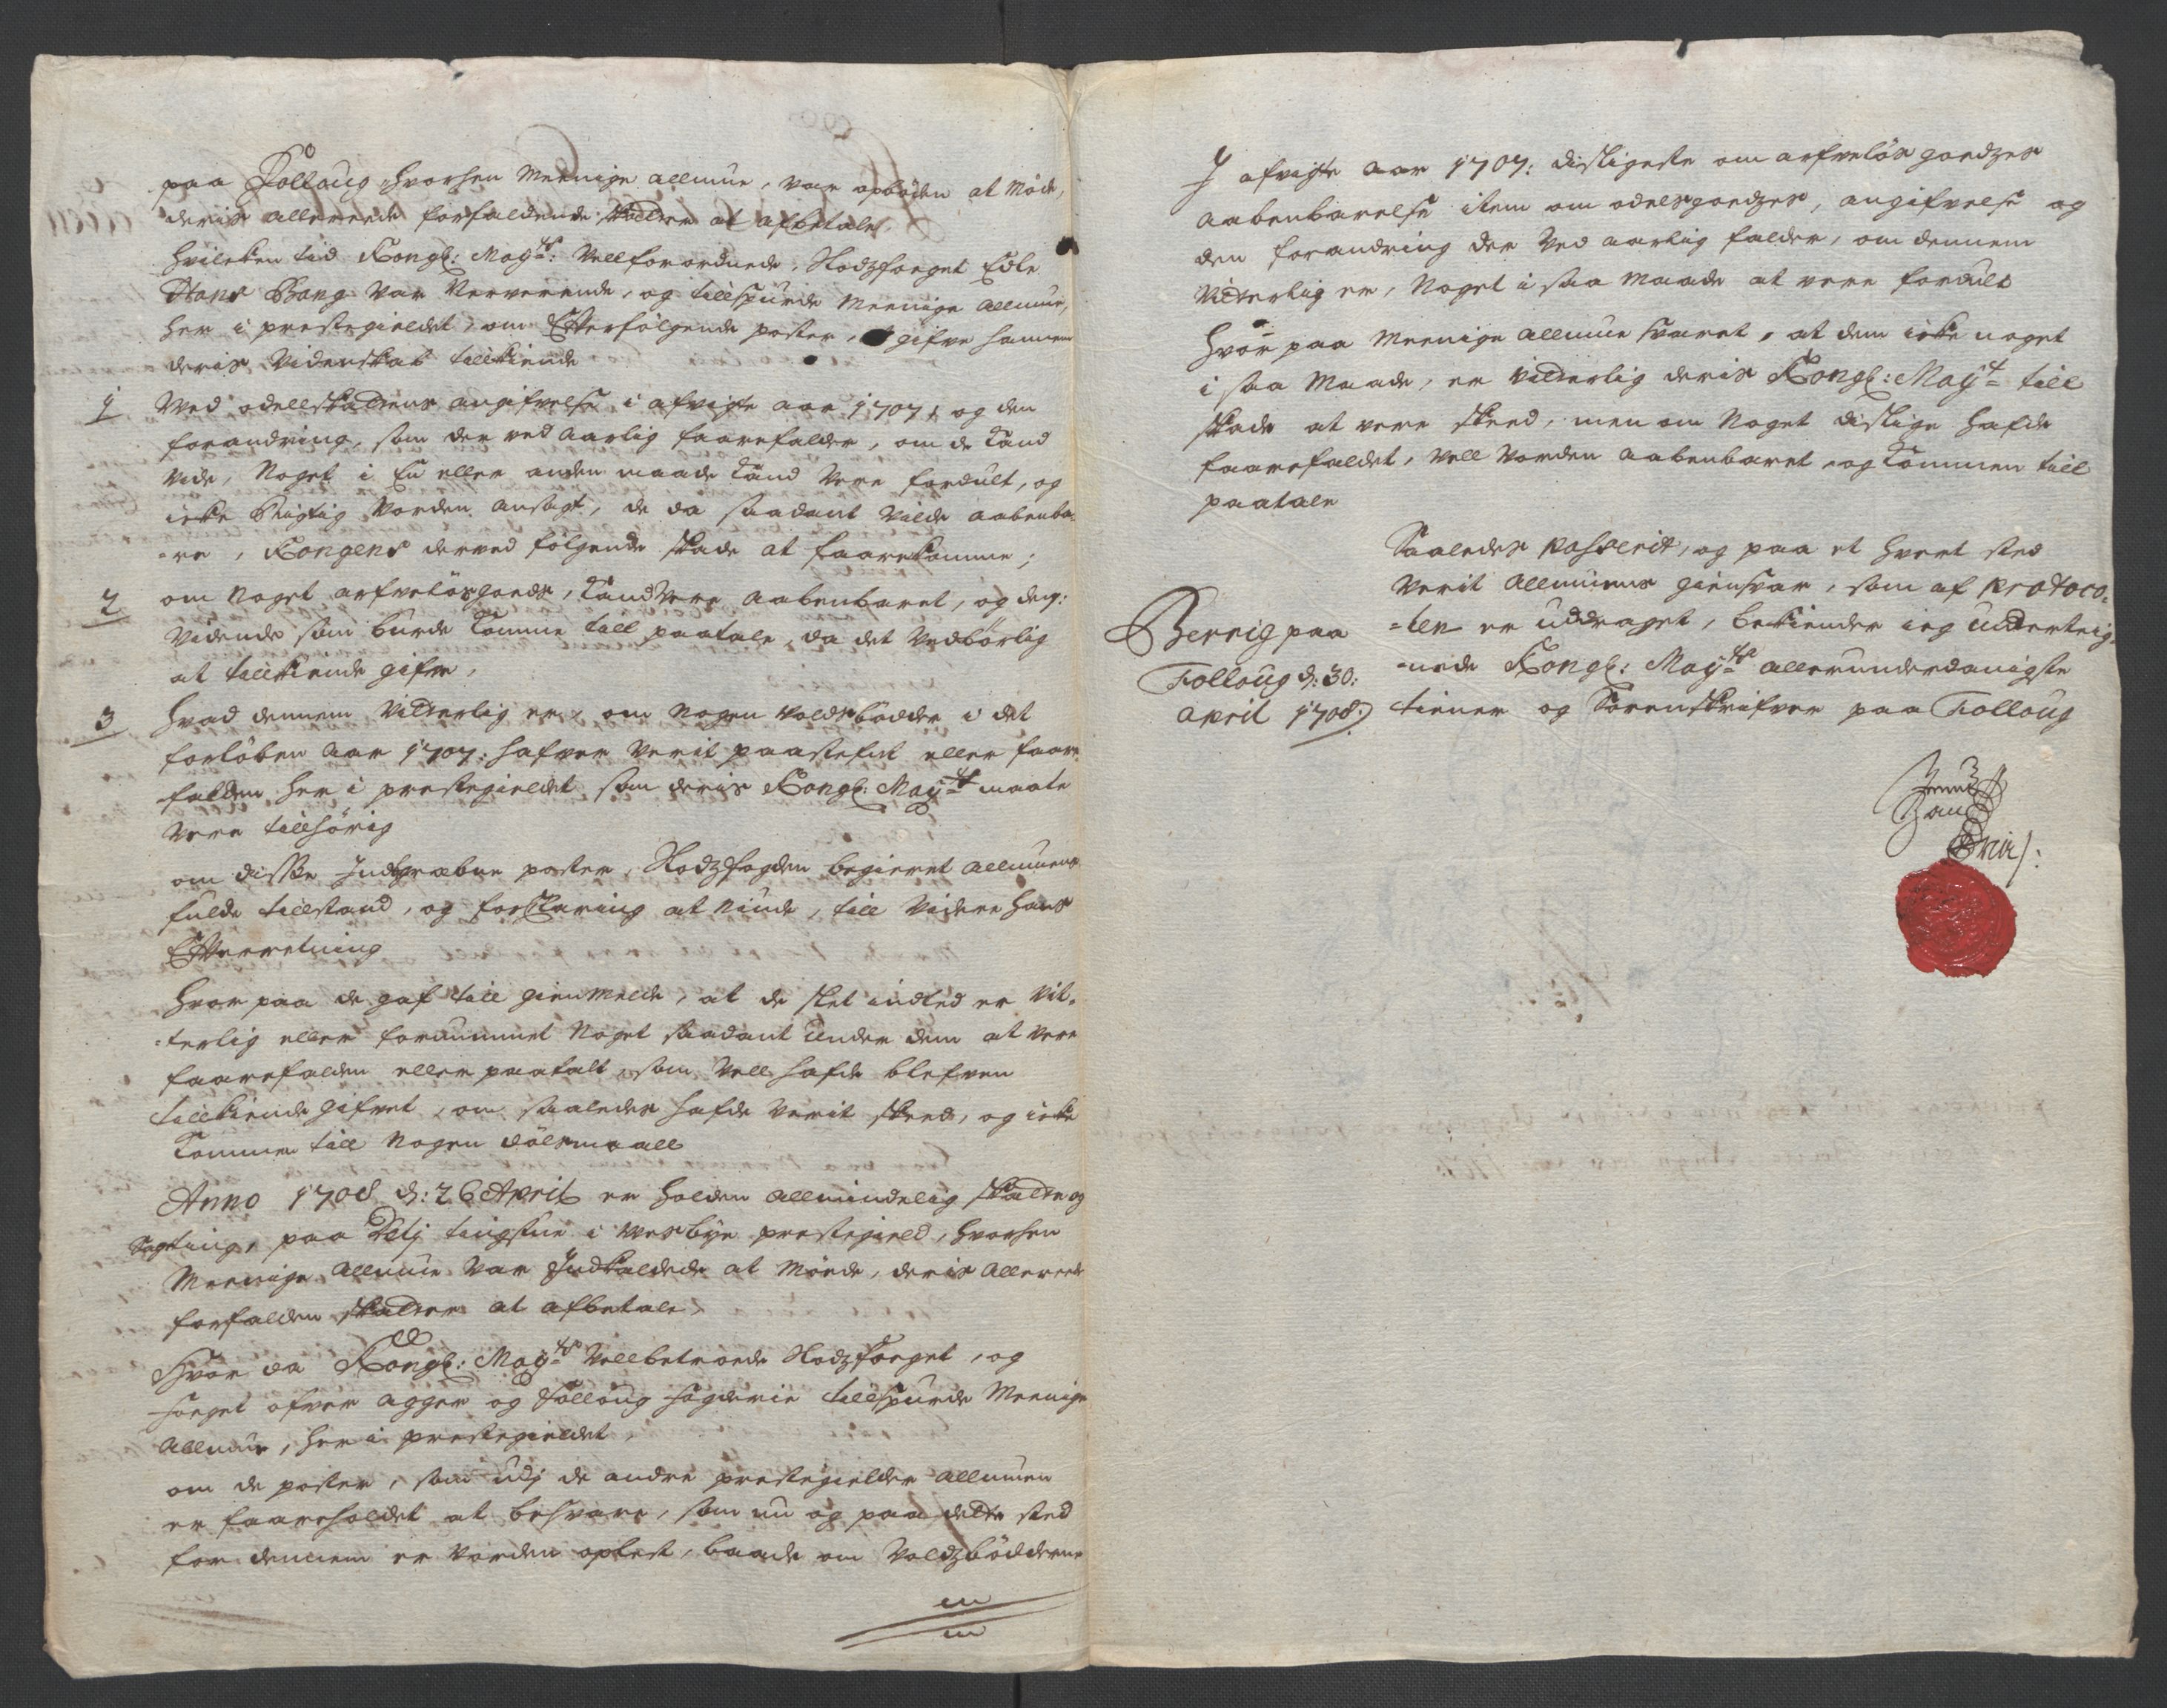 paa Folloug hvorhen Meenige allmue, var opböden at Möde,
deris allereede forfaldende skatter at afbetale,
hvilchen tid Kongl: May:ts: Vellforordnede, Stodzfoeget Edle
Hans Bang var Nerverende, og tillspurde Meenige allmue,
her i prestegieldet, om Efterfölgende poster, at gifve hannem
deris Videnskab tillkiende
1 Ved odellskattens angifvelse i afvigte aar 1707, og den
forandring, som der ved aarlig faarefalder, om de kand
vide, Noget i En eller anden maade kand vere fordult, og
icke Rigtig vorden ansagt, de da saadant vilde aabenba-
-re, Kongens derved fölgende skade at faarekomme;
2 om Noget arfvelösgoeds, kand vere aabenbaret, og deris
vidende som burde komme till paatale, da det Vedbörlig
at tillkiende gifve,
3 hvad dennem Vitterlig er, om Nogen Voldsbödder i det
forlöben aar 1707: hafver verit paastefnt eller faare
falden her i prestegieldet som deris Kongl: May:ts maate
vere tillhörig
om disse Indskrebne poster, Stodzfogden begieret allmuens
fulde tillstand, og forklaring at niude, till Videre hans
Efterretning
hvor paa de gaf till gienmelde, at de slet indted er vit-
-terlig eller fornummet Noget saadant under dem at vere
faarefalden eller paatalt, som Vell hafde blefven
tillkiende gifvet, om saaledes hafde verit skeed, og icke
kommen till Nogen dölsmaall
Anno 1708 d: 26 April er holden allmindelig skatte og
Sageting, paa tingstue i Vesbye prestegield, hvorhen
Meenige Allmue var Indkaldede at Möede, deris allereede
forfalden skatter at afbetale,
Hvor da Kongl: May:ts Vellbetroede Stodzfoeget, og
foeget ofver Agger og Folloug fogderie tillspurde Meenige
Allmue, her i prestegieldet,
om de poster, som udj de andre prestegielder allmuen
er faareholdet at besvare, som nu og paa dette sted
for dennem er vorden oplest, baade om Voldzbödderne
I afvigte aar 1707: disligeste om arfvelös goedzes
aabenbarelse item om odelsgoedzes, angifvelse og
den forandring der ved aarlig falder, om dennem
Vitterlig er, Noget i saa maade at vere fordult
hvor paa Meenige allmue svaret, at dem icke noget
i saa maade, er vitterlig deris Kongl: May:t till
skade at vere skeed, men om Noget dislige hafde
faarefaldet, Vell vorden aabenbaret, og kommen till
paatale
Saaledes passerit, og paa et hvert sted
verit allmuens giensvar, som af protoco-
-llen er uddraget, bekiender ieg underteig-
-nede Kongl: May:ts allerunderdanigste
tiener og Sorenskrifver paa Folloug
Berrig paa
Folloug d: 30:
april 1708: